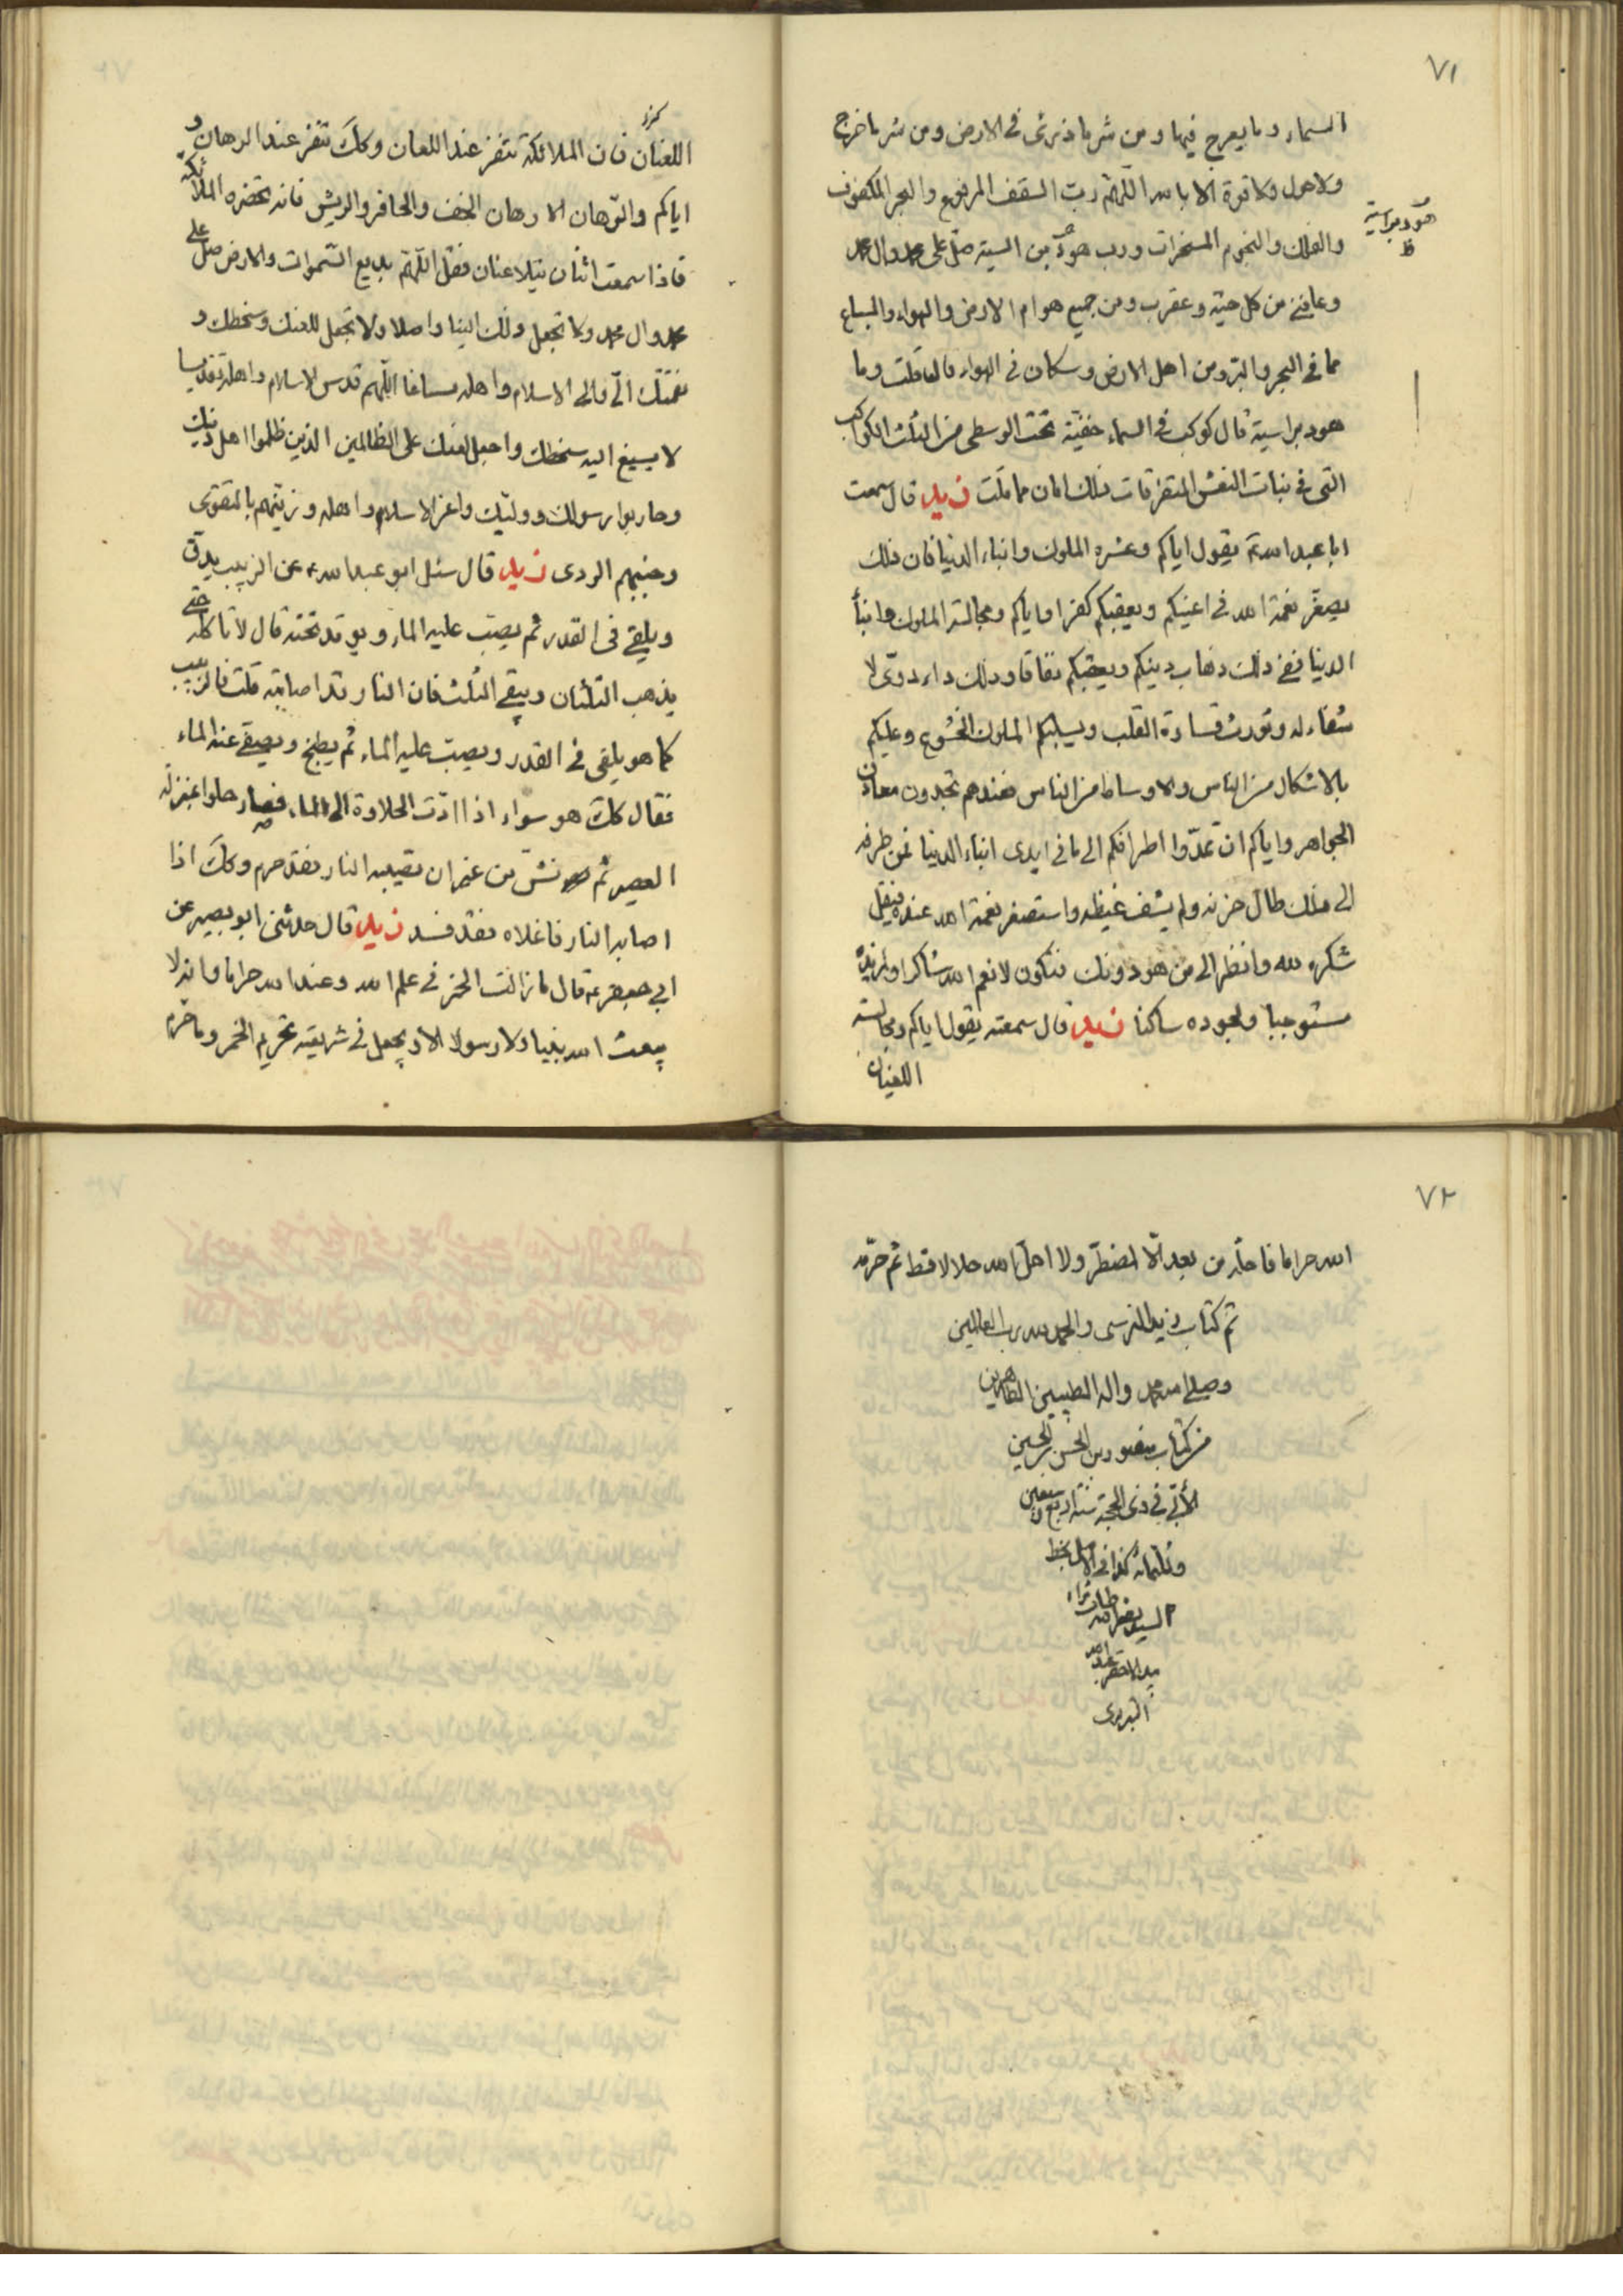 ٧١
السماء وما يعرج فيها ومن شر ما ذرئ في الارض ومن شر ما خرج
ولا حول ولا قوة الا بالله اللهم رب السقف المرفوع والبحر المكفوف
والفلك والنجوم المسخرات ورب هود بن اسية صل على محمد وال محمد
هود بن اسية ظ
وعافني من كل حية وعقرب ومن جميع هوام الارض والهواء والسباع
مما في البحر والبر ومن اهل الارض وسكان في الهواء قال قلت وما
هود بن اسية قال كوكب في السماء خفية تحت الوسطى من الثلث الكواكب
التي في بنات النعش المتفرقات ذلك امان مما قلت زيد قال سمعت
ابا عبد الله ع يقول اياكم وعشرة الملوك وابناء الدنيا فان ذلك
يصغر نعمة الله في اعينكم ويعقبكم كفرا واياكم ومجالسة الملوك وابنا
الدنيا ففي ذلك ذهاب دينكم ويعقبكم نفاقا وذلك داء دوي لا
شفاء له وتورث قساوة القلب ويسلبكم الخشوع وعليكم
بالاشكال من الناس والاوساط من الناس فعندهم تجدون معادن
الجواهر واياكم ان تمدوا اطرافكم الى ما في ايدي ابناء الدنيا فمن مد طرفه
الى ذلك طال حزنه ولم يشف غيظه واستصغر نعمة الله عنده فيقل
شكره لله وانظر الى من هو دونك فتكون لانعم الله شاكرا ولمزيده
مستوجبا ولجوده ساكنا زيد قال سمعته يقول اياكم ومجالسة
اللعان
اللعان فان الملائكة تنفر عند اللعان وكك تنفر عند الرهان و
اياكم والرهان الا رهان الخف والحافر والريش فانه تحضره الملائكة
فاذا سمعت اثنان يتلاعنان فقل اللهم بديع السموات والارض صل على
محمد وال محمد ولا تجعل ذلك الينا واصلا ولا تجعل للعنك وسخطك و
نقمتك الي والى الاسلام واهله مساغا اللهم قدس الاسلام واهله تقديسا
لا يسيغ اليه سخطك واجعل لعنك على الظالمين الذين ظلموا اهل دينك
وحاربوا رسولك ووليك واعز الاسلام واهله وزينهم بالتقوى
وجنبهم الردى زيد قال سئل ابو عبد الله ع عن الزبيب يدق
ويلقى في القدر ثم يصب عليه الماء ويوقد تحته قال لا تاكله حتى
يذهب الثلثان ويبقى الثلث فان النار قد اصابته قلت فالزبيب
كما هو يلقى في القدر ويصب عليه الماء ثم يطبخ ويصفى عنه الماء
فقال كك هو سواء اذا ادت الحلاوة الى الماء فصار حلوا بمنزلة
العصير ثم نش من غير ان تصيبه النار فقد حرم وكك اذا
اصابه النار فاغلاه فقد فسد زيد قال حدثني ابو بصير عن
ابي جعفر ع قال ما زالت الخمر في علم الله وعند الله حراما وانه لا
يبعث الله نبيا ولا رسولا الا ويجعل في شريعته تحريم الخمر وما حرم
٧٢
الله حراما فاحله من بعد الا لمضطر ولا احل الله حلالا قط ثم حرمه
تم كتاب زيد النرسي والحمد لله رب العالمين
وصلى الله محمد واله الطيبين الطاهرين
من كتاب منصور بن الحسن بن الحسين
الأبي في ذي الحجة سنة اربع وسبعين
وثلثمائة كذا في الاصل بخط
السيد نصر الله طاب ثراه
بيد الاحقر
التبريزي